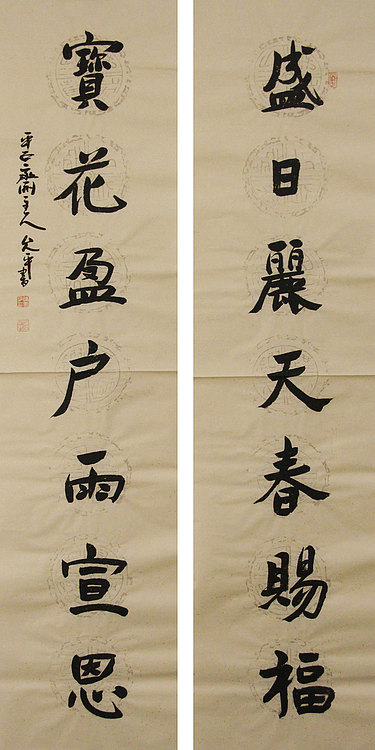 盛日麗天春賜福
寶花盈户雨宣恩
主人允平書